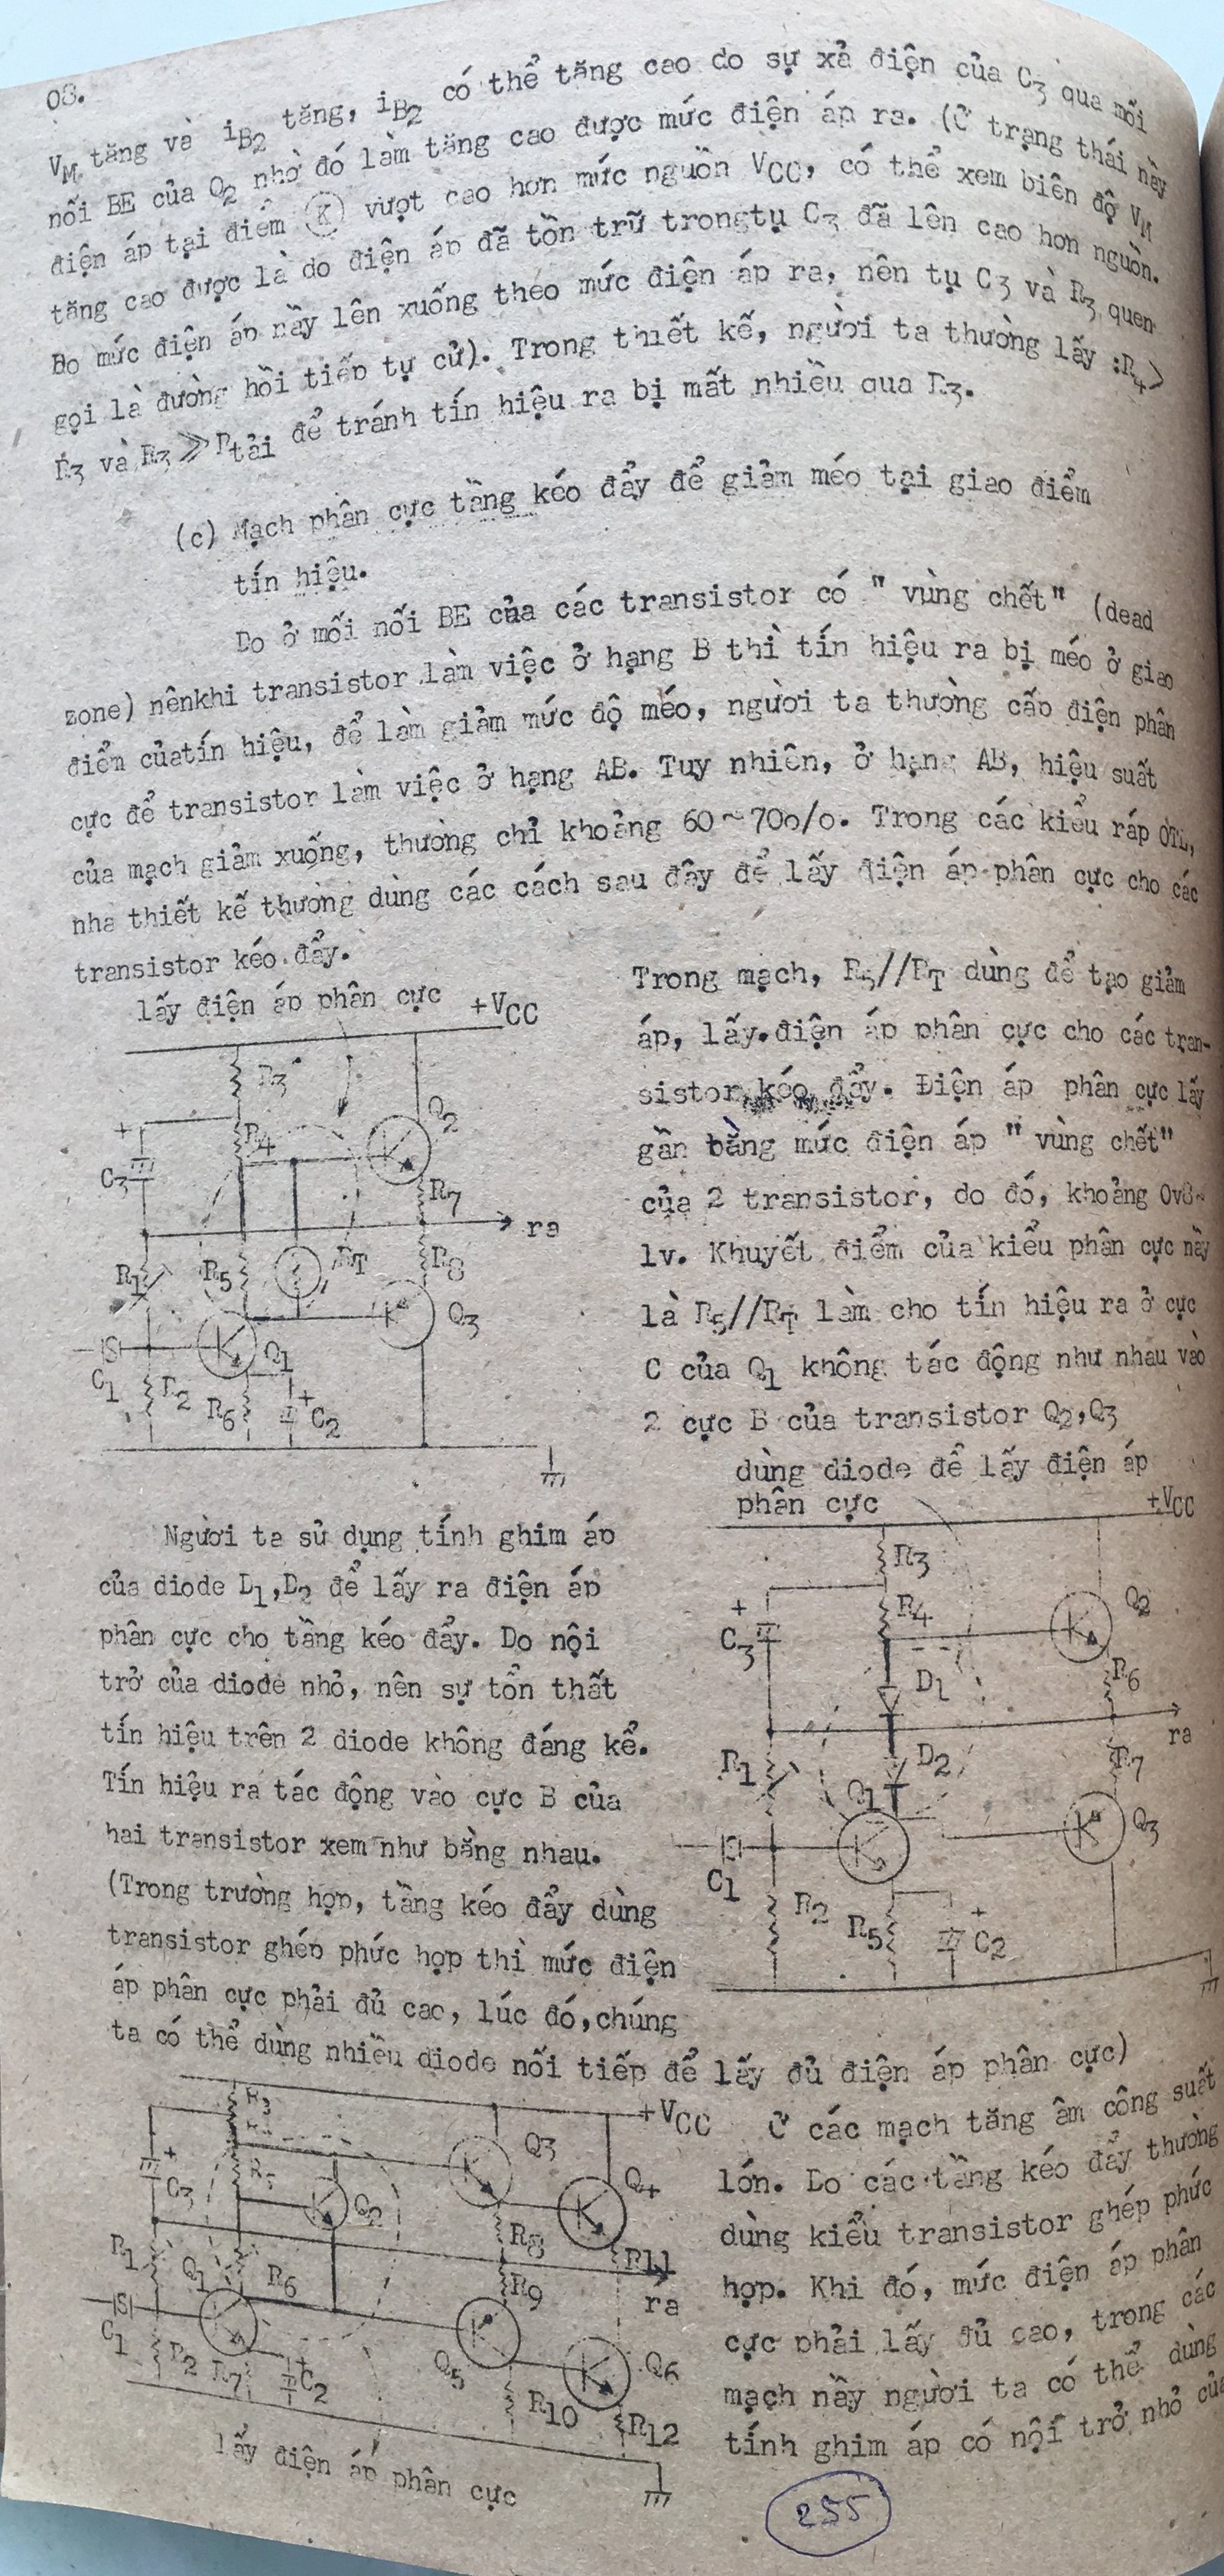 03.
VM tăng và iB2 tăng, iB2 có thể tăng cao do sự xả điện của C3 qua mối
nối BE của Q2 nhờ đó làm tăng cao được mức điện áp ra. (Ở trạng thái nầy
điện áp tại điểm (K) vượt cao hơn mức nguồn VCC, có thể xem biên độ VM
tăng cao được là do điện áp đã tồn trữ trongtụ C3 đã lên cao hơn nguồn.
Do mức điện áp nầy lên xuống theo mức điện áp ra, nên tụ C3 và R3 quen
gọi là đường hồi tiếp tự cử). Trong thiết kế, người ta thường lấy :R4>
R3 và R3 ≫ Rtải để tránh tín hiệu ra bị mất nhiều qua R3.
(c) Mạch phân cực tầng kéo đẩy để giảm méo tại giao điểm
tín hiệu.
Do ở mối nối BE của các transistor có " vùng chết" (dead
zone) nênkhi transistor làm việc ở hạng B thì tín hiệu ra bị méo ở giao
điểm củatín hiệu, để làm giảm mức độ méo, người ta thường cấp điện phân
cực để transistor làm việc ở hạng AB. Tuy nhiên, ở hạng AB, hiệu suất
của mạch giảm xuống, thường chỉ khoảng 60~70o/o. Trong các kiểu ráp OTL,
nhà thiết kế thường dùng các cách sau đây để lấy điện áp phân cực cho các
transistor kéo đẩy.
lấy điện áp phân cực +VCC
R3
Q2
R4
+
C3
R7
ra
R1
R5
RT
R8
Q3
Q1
C1
R2
R6
+
C2
Trong mạch, R5//RT dùng để tạo giảm
áp, lấy điện áp phân cực cho các tran-
sistor kéo đẩy. Điện áp phân cực lấy
gần bằng mức điện áp " vùng chết"
của 2 transistor, do đó, khoảng 0v8~
1v. Khuyết điểm của kiểu phân cực nầy
là R5//RT làm cho tín hiệu ra ở cực
C của Q1 không tác động như nhau vào
2 cực B của transistor Q2,Q3
dùng diode để lấy điện áp
phân cực
+VCC
R3
R4
Q2
+
C3
D1
R6
ra
R1
D2
R7
Q1
Q3
C1
R2
R5
+
C2
Người ta sử dụng tính ghim áp
của diode D1,D2 để lấy ra điện áp
phân cực cho tầng kéo đẩy. Do nội
trở của diode nhỏ, nên sự tổn thất
tín hiệu trên 2 diode không đáng kể.
Tín hiệu ra tác động vào cực B của
hai transistor xem như bằng nhau.
(Trong trường hợp, tầng kéo đẩy dùng
transistor ghép phức hợp thì mức điện
áp phân cực phải đủ cao, lúc đó,chúng
ta có thể dùng nhiều diode nối tiếp để lấy đủ điện áp phân cực)
R3
+VCC
Q3
+
C3
Q2
Q4
R1
Q1
R6
R8
R11
R9
ra
C1
R2
R7
+
C2
Q5
Q6
R10
R12
lấy điện áp phân cực
Ở các mạch tăng âm công suất
lớn. Do các tầng kéo đẩy thường
dùng kiểu transistor ghép phức
hợp. Khi đó, mức điện áp phân
cực phải lấy đủ cao, trong các
mạch nầy người ta có thể dùng
tính ghim áp có nội trở nhỏ của
255